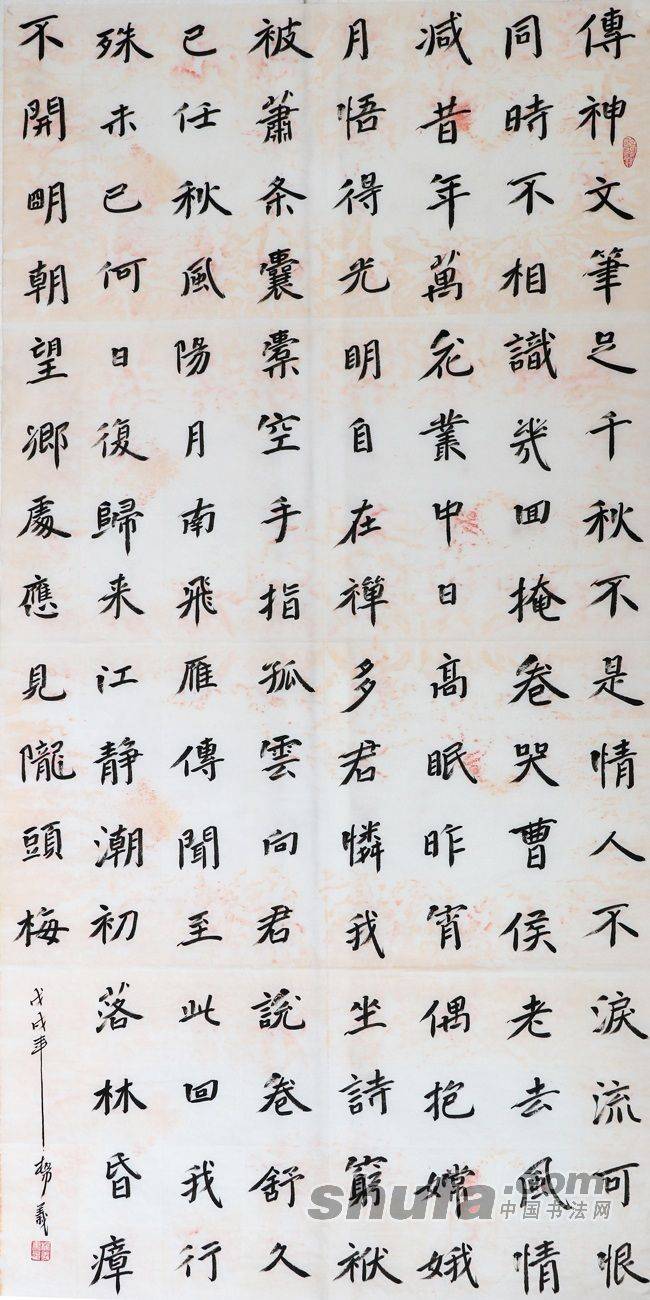 傳神文筆足千秋不是情人不淚流可恨
同時不相識幾囬掩卷哭曹侯老去風情
减昔年萬花叢中日高眠昨宵偶抱嫦娥
月悟得光明自在禪多君憐我坐詩窮袱
被蕭条囊橐空手指孤雲向君說卷舒久
已任秋風陽月南飛雁傳聞至此回我行
殊未已何日復歸来江静潮初落林昏瘴
不開明朝望鄉處應見隴頭梅
戊戌年 義
shufa.com
中国书法网